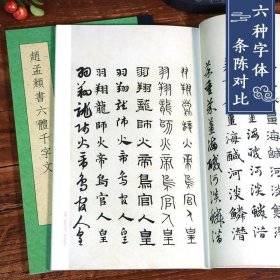 六种字体
条陈对比
趙孟頫書六體千字文
海鹹河淡鱗
薑海鹹河淡鱗潛
菜重芥薑海鹹河淡鱗
羽翔龍師火帝鳥官人皇
羽翔龍師火帝鳥官人皇
羽翔龍師火帝鳥官人皇
羽翔龍師火帝鳥官人皇
羽翔龍師火帝鳥官人皇
羽翔龍師火帝鳥官人皇